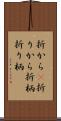 折から 折
りから折柄
折り柄